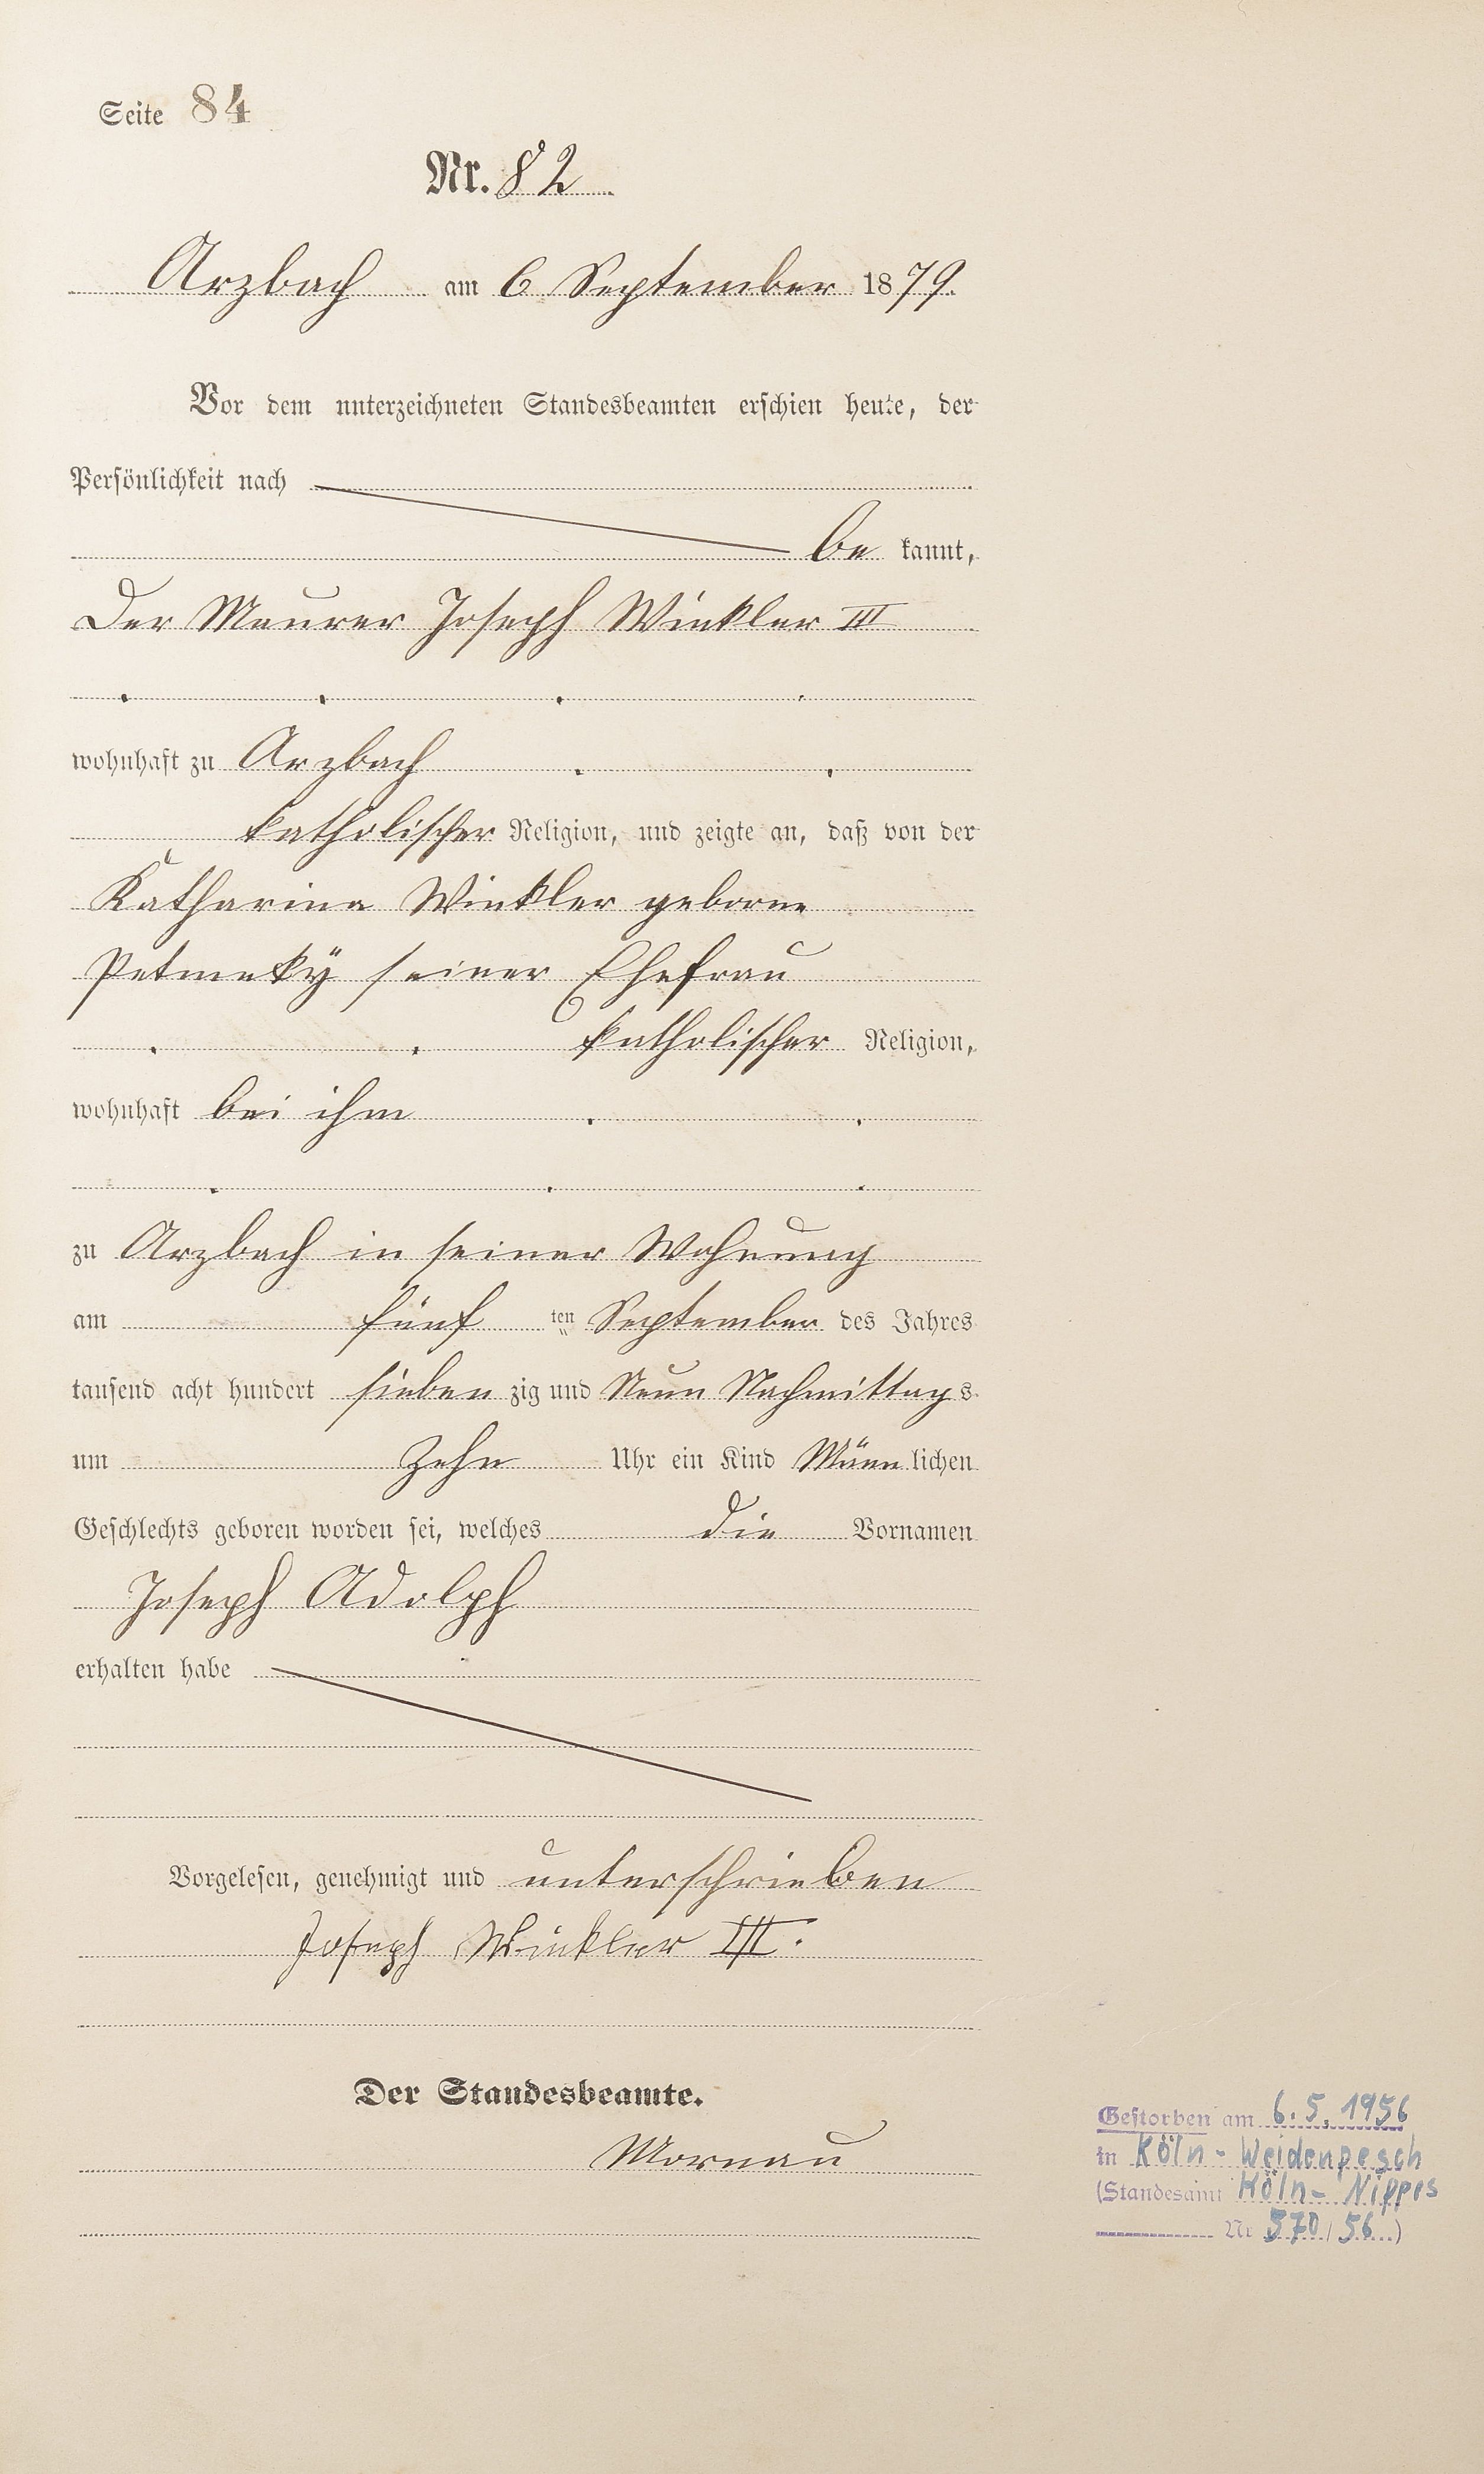 Seite 84
Nr. 82
Arzbach am 6 September 1879.
Vor dem unterzeichneten Standesbeamten erschien heute, der
Persönlichkeit nach
be kannt,
Der Maurer Joseph Winkler III
wohnhaft zu Arzbach
katholischer Religion, und zeigte an, daß von der
Katharina Winkler geborne
Petmeky seiner Ehefrau
katholischer Religion,
wohnhaft bei ihm
zu Arzbach in seiner Wohnung
am fünf ten September des Jahres
tausend acht hundert sieben zig und Neun Nachmittags
um Zehn Uhr ein Kind Männlichen
Geschlechts geboren worden sei, welches die Vornamen
Joseph Adolph
erhalten habe
Vorgelesen, genehmigt und unterschrieben
Joseph Winkler III.
Der Standesbeamte.
Mornau
Gestorben am 6.5.1956
in Köln-Weidenpesch
(Standesamt Köln-Nippes
Nr 570/56)